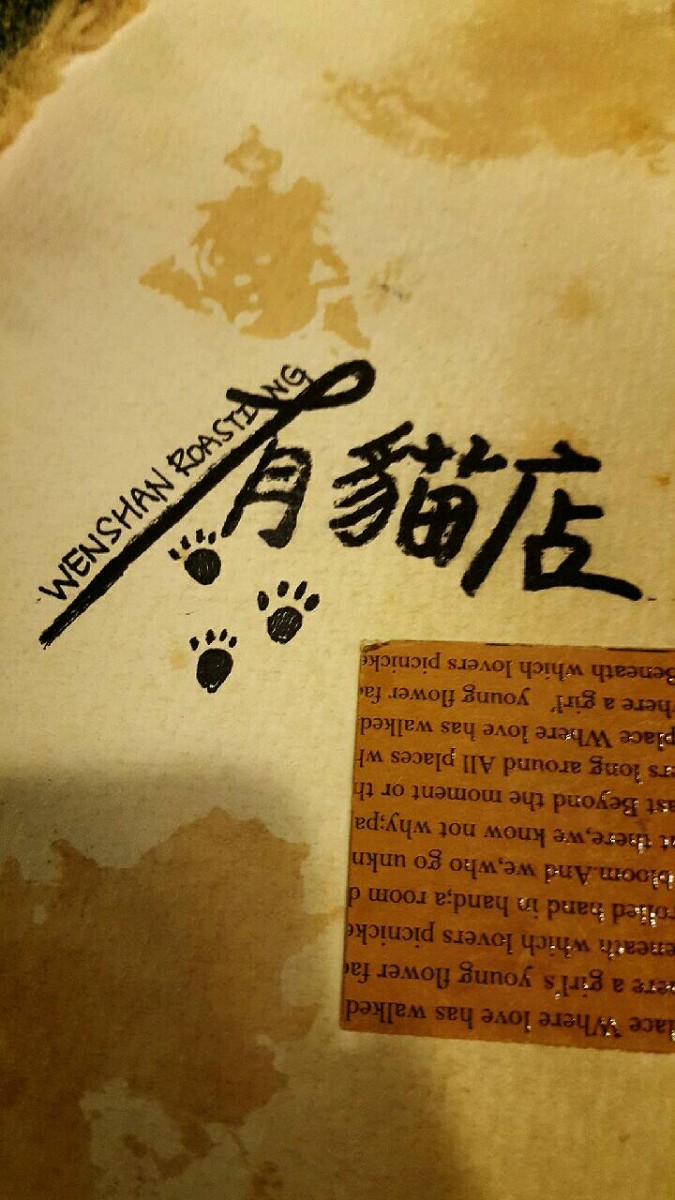 WENSHAN ROASTING
有貓店
lace Where love has walked
ere a girl's young flower fac
eneath which lovers picnicke
rolled hand in hand;a room d
bloom.And we,who go unkn
t there,we know not why;pa
ast Beyond the moment or th
ers long around All places wh
place Where love has walked
here a girl' young flower fa
Beneath which lovers picnicke